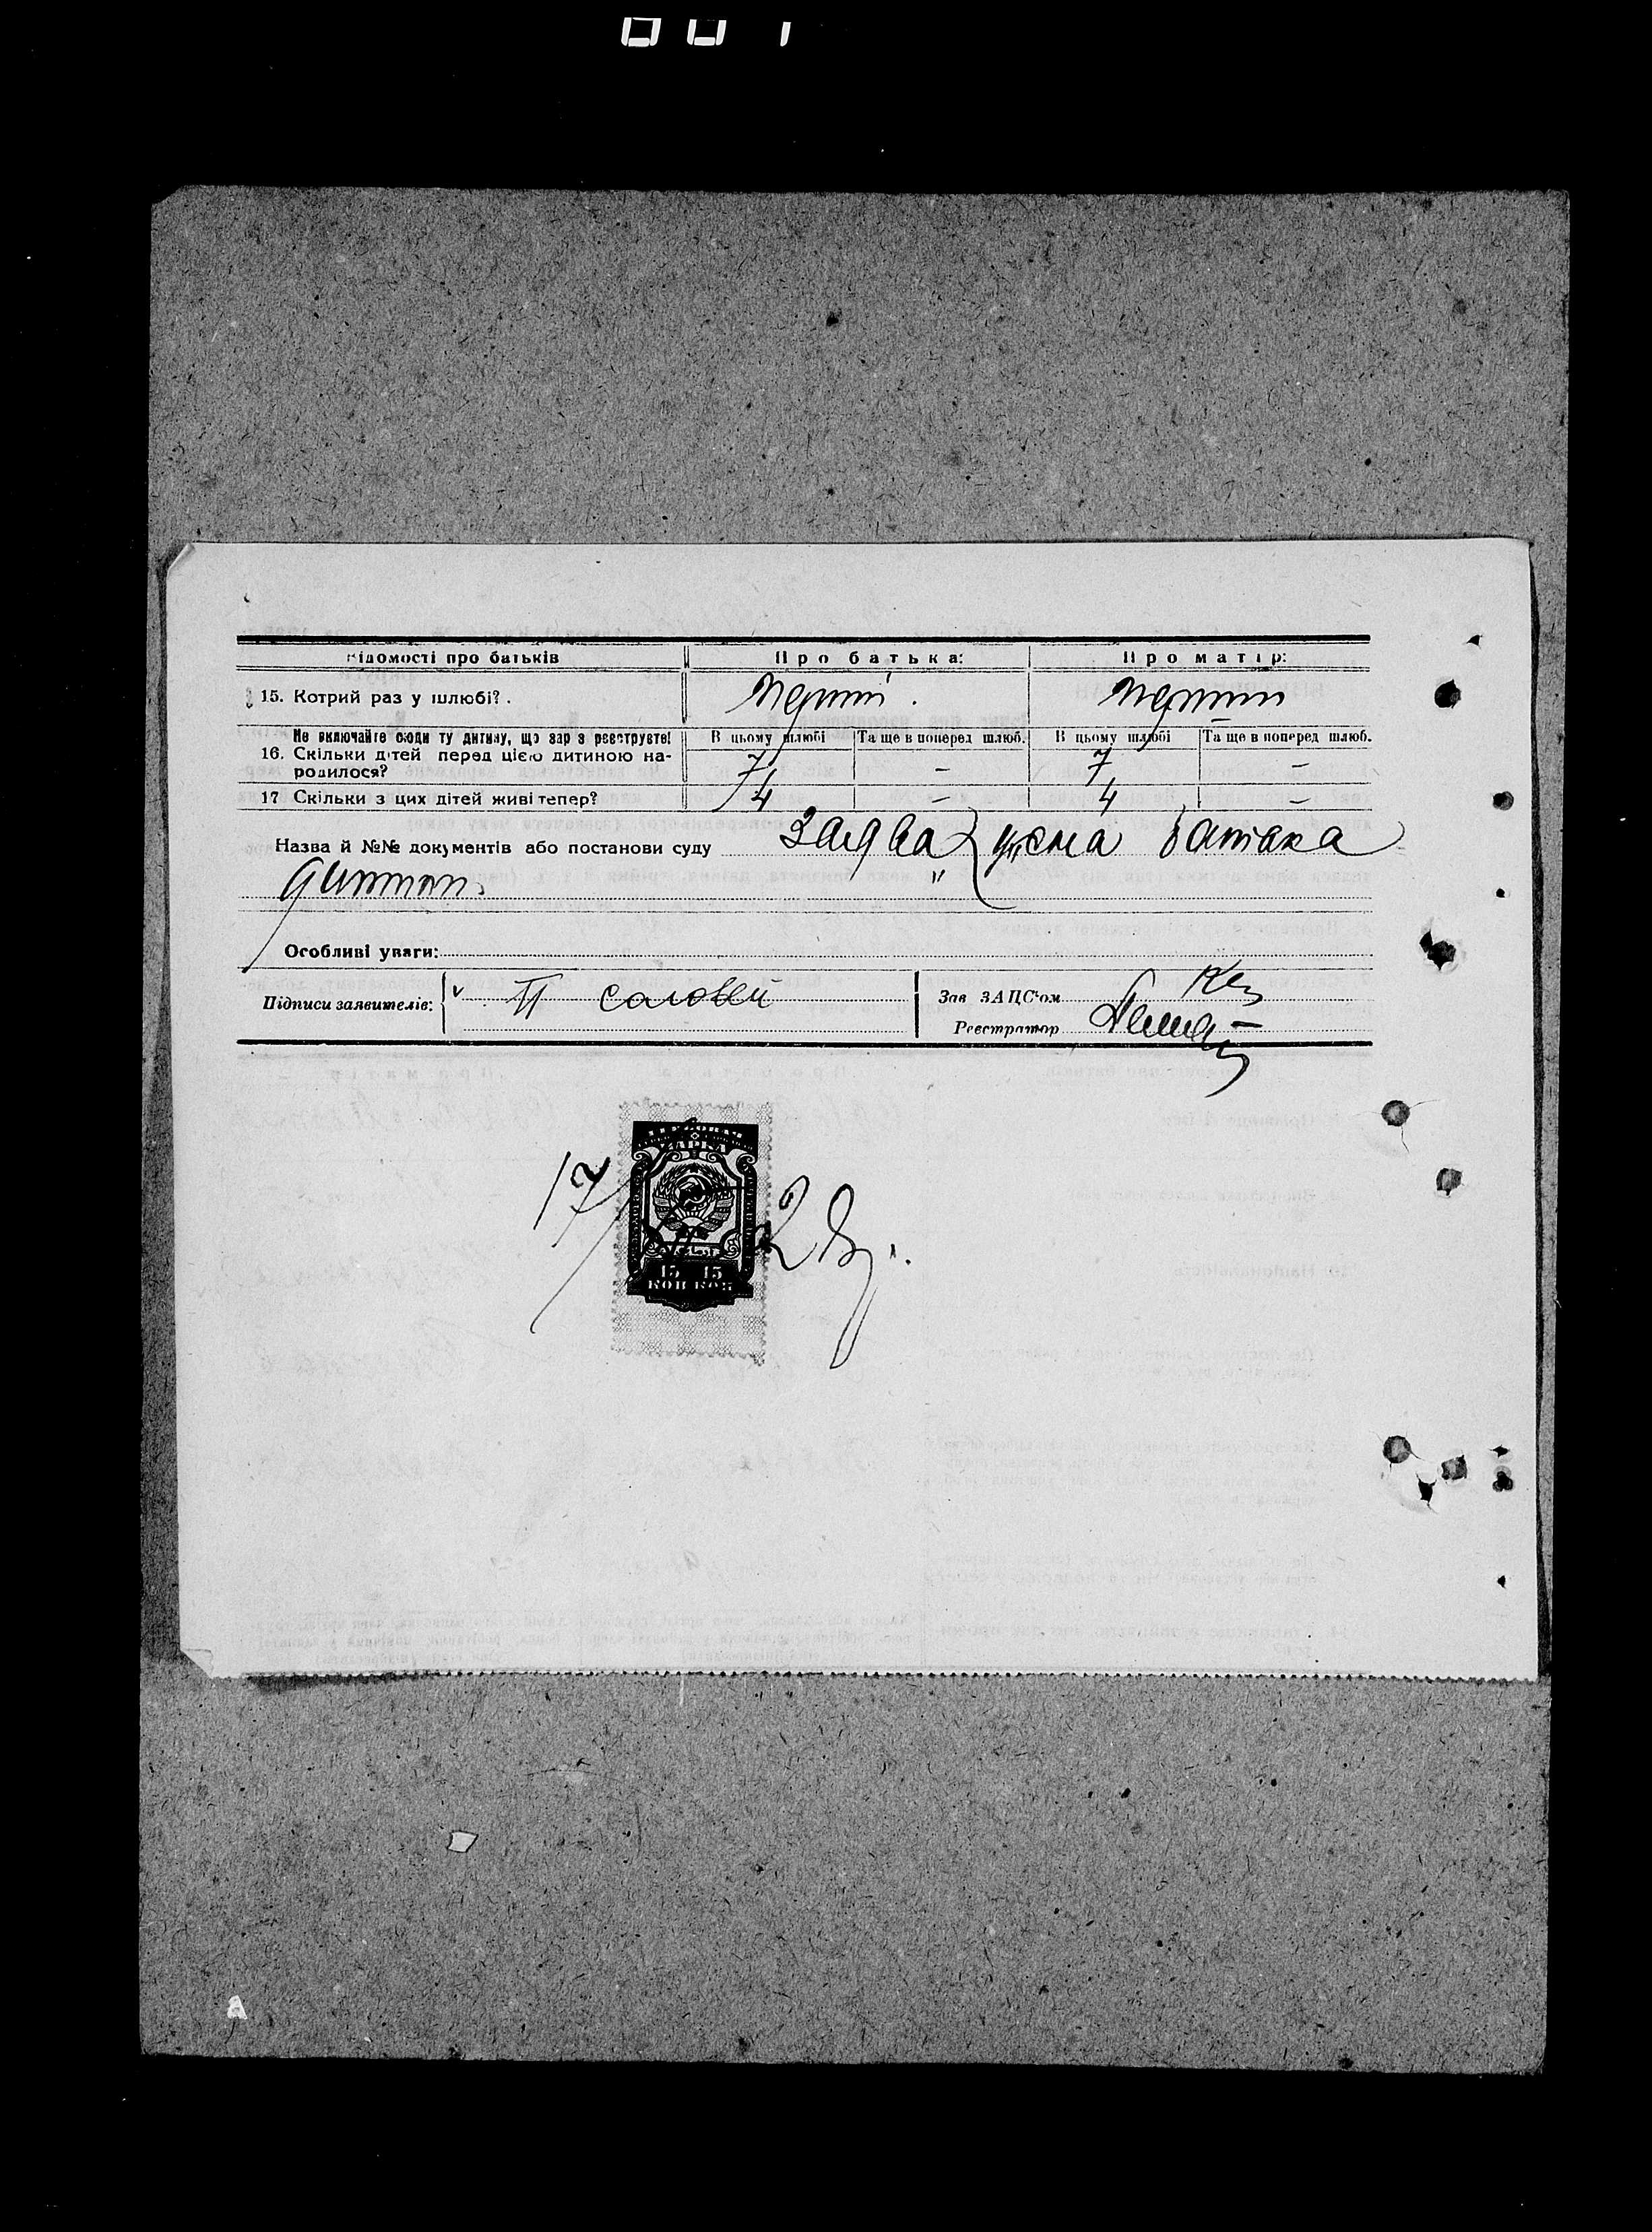 001
Відомості про батьків Про батька: Про матір:
15. Котрий раз у шлюбі?. перший. перший
Не включайте сюди ту дитину, що зар з реєструєте! В цьому шлюбі Та ще в поперед шлюб. В цьому шлюбі Та ще в поперед шлюб.
16. Скільки дітей перед цією дитиною на-
родилося? 7 – 7 –
17 Скільки з цих дітей живі тепер? 4 – 4 –
Назва й №№ документів або постанови суду заява батька
дитини.
Особливі уваги:
Підписи заявителів: Соловей
Зав ЗАГС'ом
Реєстратор
МАРКА
17/ 28
15 15
КОП КОП
A